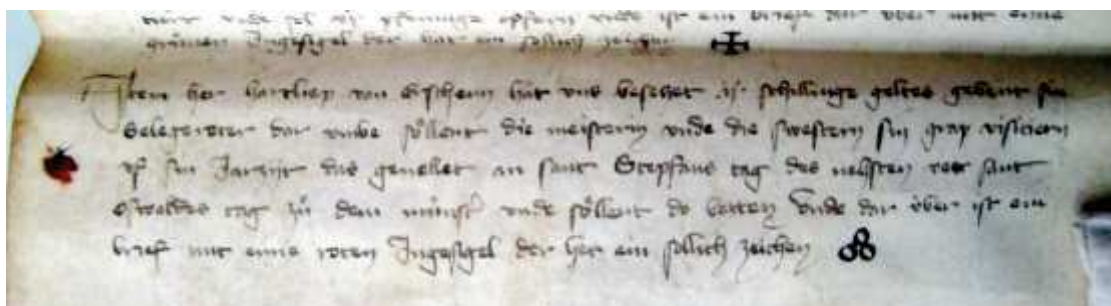 vnde sol xij pfenninge opfern vnde ist ein brieff dar vber mit eime
grůnen Ingesigel der hat ein sollich zeichen
Item her hartliep von Eschenn hat vns besetzet .ij. schillinge geltes gebent sin
dar vmbe sőllent die meistern vnde die swestern sin grap visitieren
vf sin Jarzijt das gevellet an sant Steffans tag des nehsten vor sant
Oswaldes tag zů dem můnster vnde sőllent do betten Vnde dar ů́ber ist ein
brief mit eime roten Ingesigel der het ein sőllich zeichen